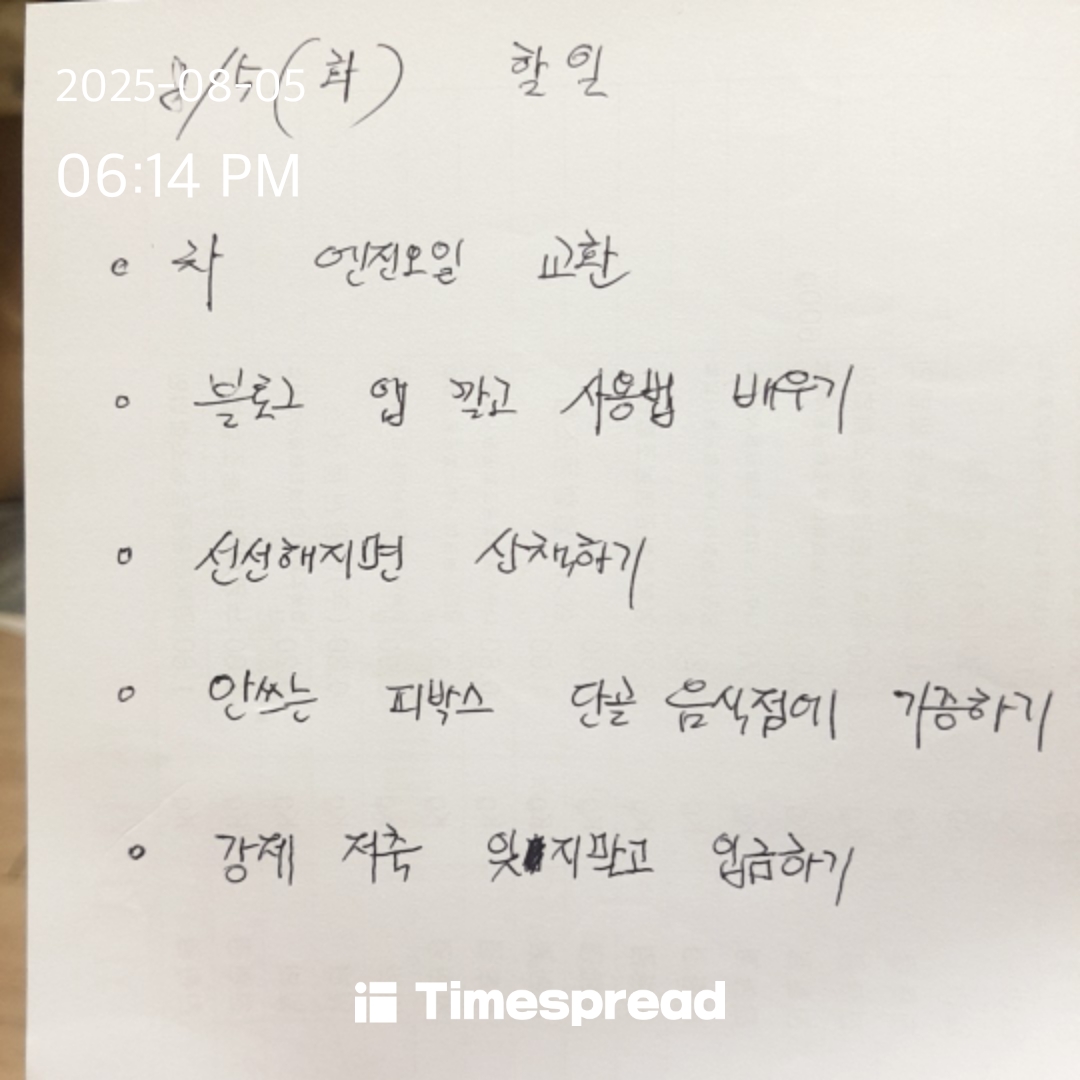 8/5(화) 할일
2025-08-05
06:14 PM
차 엔진오일 교환
블로그 앱 깔고 사용법 배우기
선선해지면 산책하기
안쓰는 피박스 단골 음식점에 기증하기
강제 저축 잊지말고 입금하기
Timespread